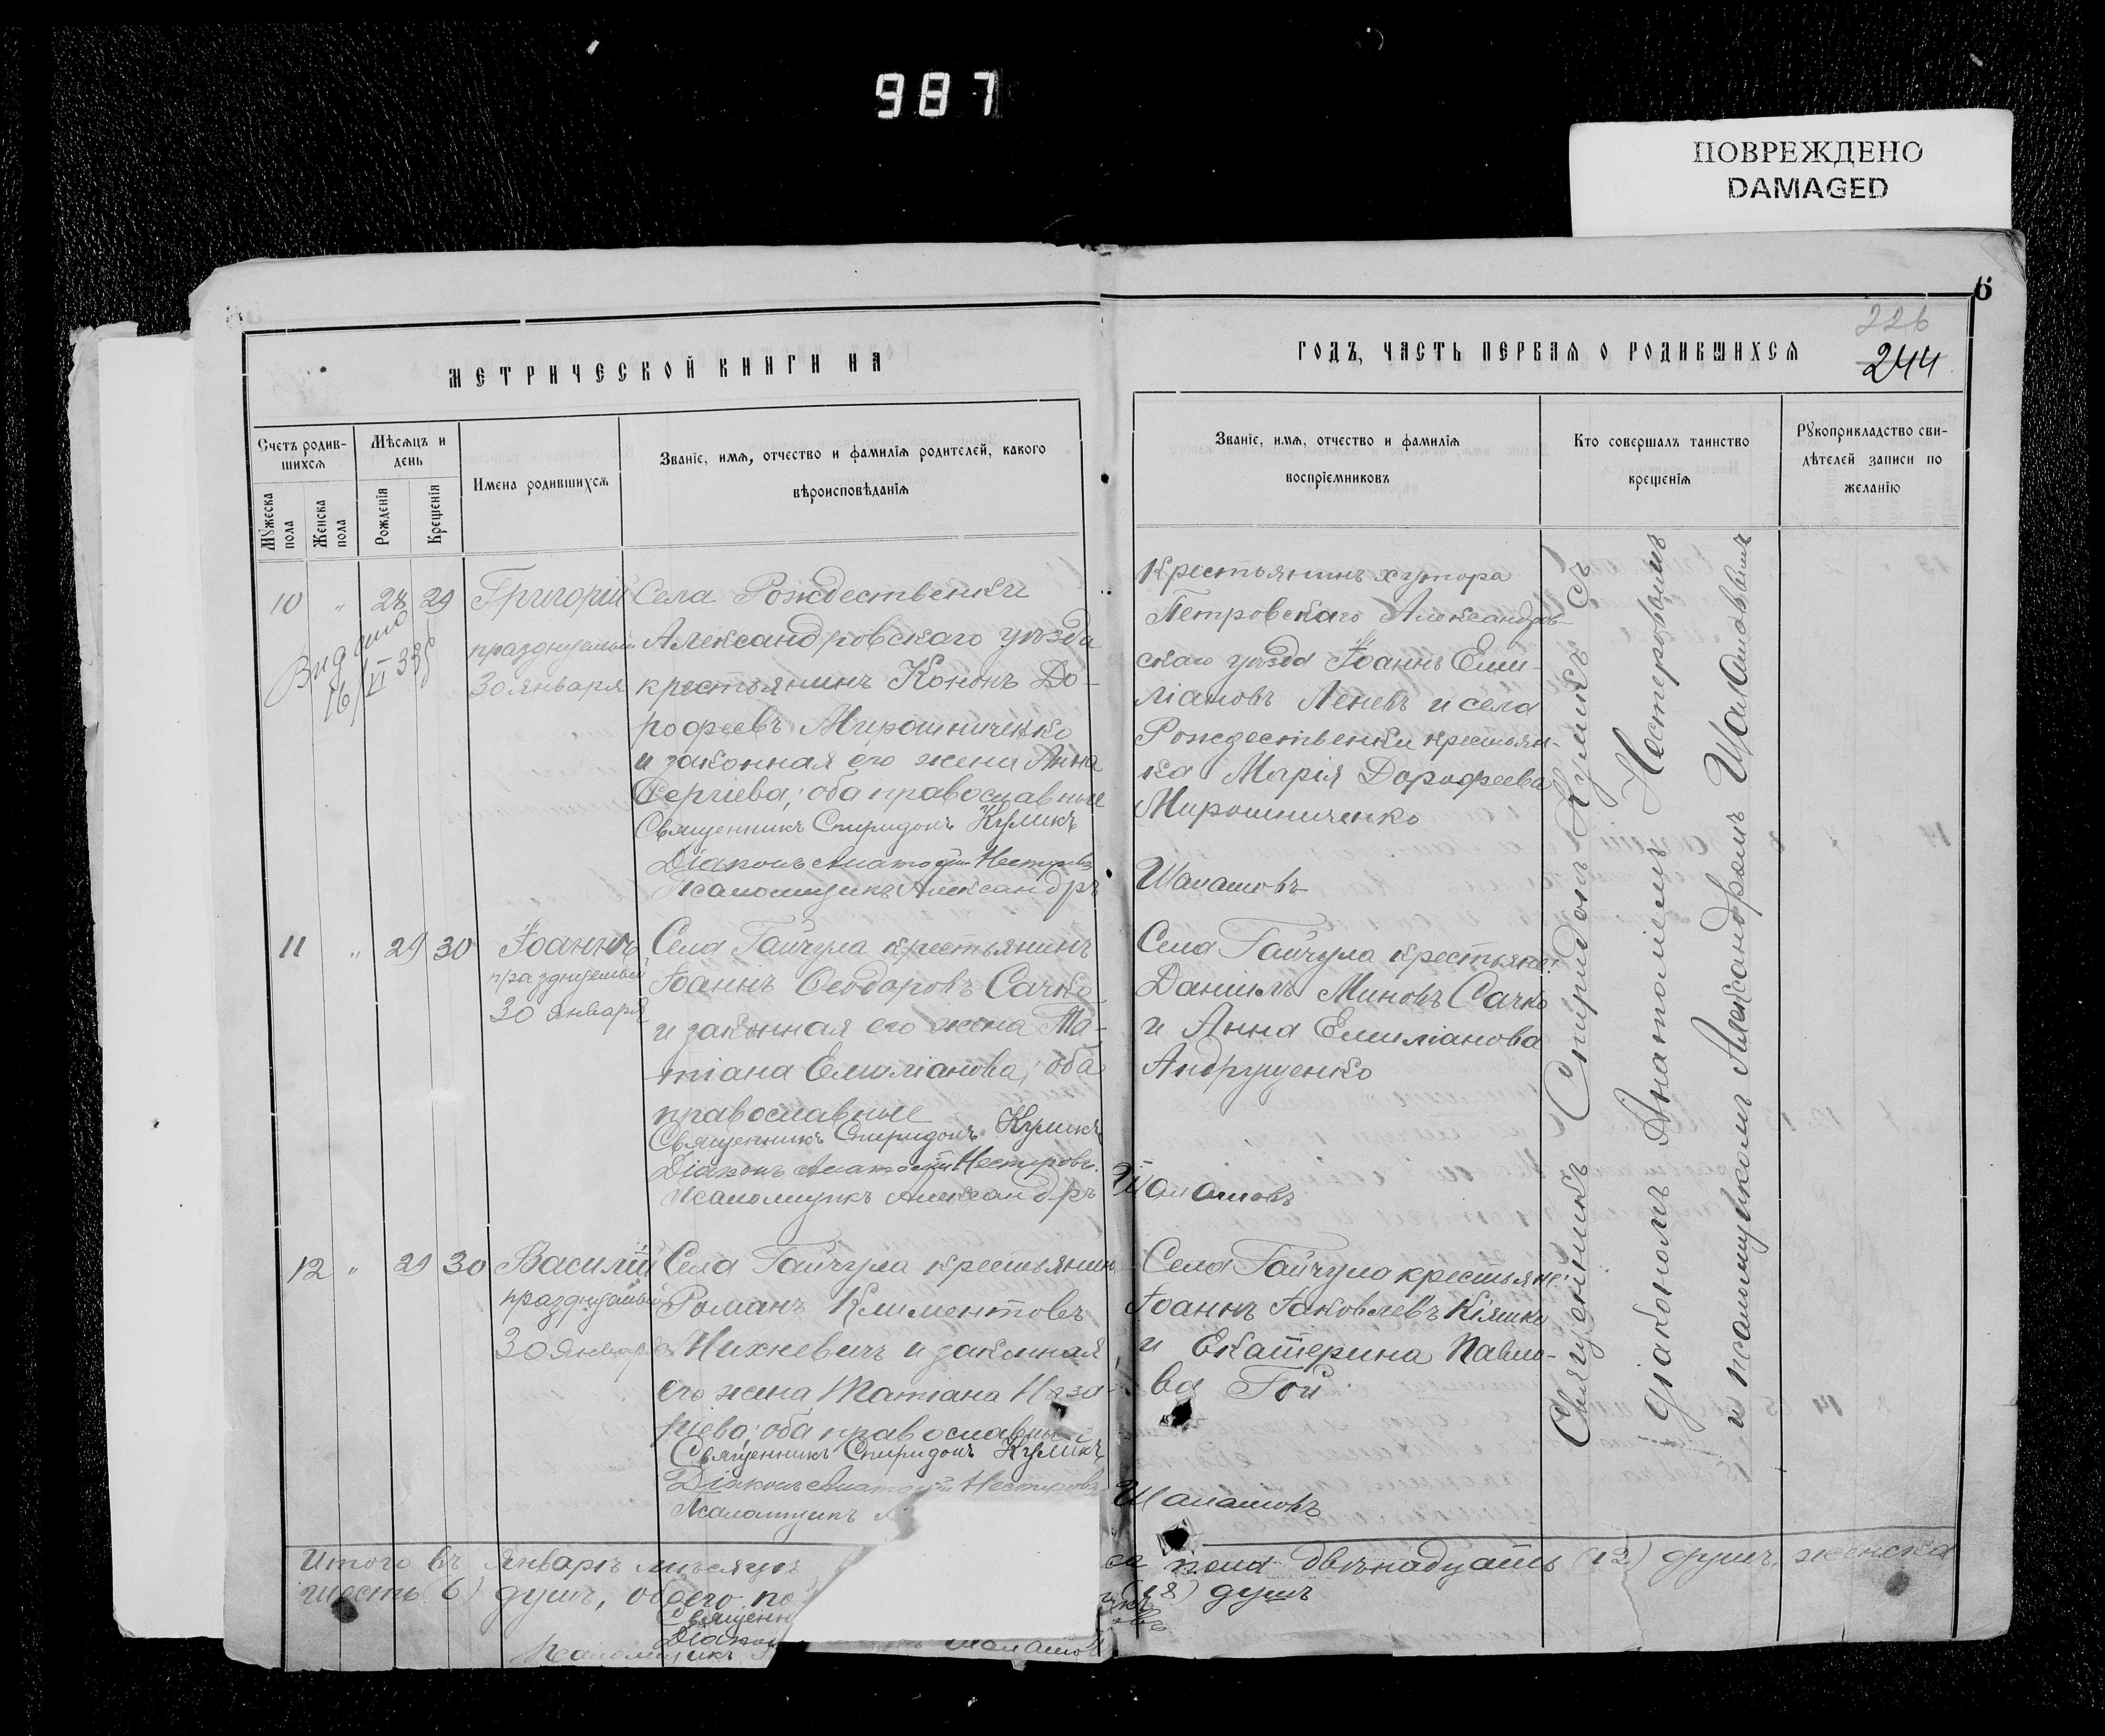 987
ПОВРЕЖДЕНО
DAMAGED
6
226
244
МЕТРИЧЕСКОЙ КНИГИ НА
ГОДЪ, ЧАСТЬ ПЕРВАЯ О РОДИВШИХСЯ
Счетъ родив-
шихся
Мужеска
пола
Женска
пола
Мѣсяцъ и
день
Рожденія
Крещенія
Имена родившихся
Званіе, имя, отчество и фамилія родителей, какого
вѣроисповѣданія
Званіе, имя, отчество и фамилія
воспріемниковъ
Кто совершалъ таинство
крещенія
Рукоприкладство сви-
дѣтелей записи по
желанію
10 " 28 29
Видано
16/VI 33
Григорій
празднуемый
30 января
Села Рождественки
Александровского уѣзда
крестьянинъ Кононъ До-
рофеевъ Мирошниченко
и законная его жена Анна
Сергіева; оба православные
Священникъ Спиридонъ Куликъ
Діаконъ Анатолій Нестеровъ
Псаломщикъ Александръ
Крестьянинъ хутора
Петровскаго Александров-
скаго уѣзда Іоаннъ Еми-
ліановъ Леневъ и села
Рождественки крестьян-
ка Марія Дорофеева
Мирошниченко
Шалашовъ
11 " 29 30
Іоаннъ
празднуемый
30 января
Села Гайчула крестьянинъ
Іоаннъ Ѳеодоровъ Сачко
и законная его жена Та-
тіана Емиліанова; оба
православные
Священникъ Спиридонъ Куликъ
Діаконъ Анатолій Нестеровъ
Псаломщикъ Александръ
Села Гайчула крестьяне:
Даніилъ Миновъ Сачко
и Анна Емиліанова
Андрущенко
Шалашовъ
12 " 29 30
Василій
празднуемый
30 января
Села Гайчула крестьянинъ
Романъ Климентовъ
Михневичъ и законная
его жена Татіана Наза-
ріева; оба православные
Священникъ Спиридонъ Куликъ
Діаконъ Анатолій Нестеровъ
Псаломщикъ
Села Гайчула крестьяне:
Іоаннъ Іаковлевъ Кіяшко
и Екатерина Павло-
ва Гой
Шалашовъ
Священникъ Спиридонъ Куликъ съ
діакономъ Анатоліемъ Нестеровымъ
и псаломщикомъ Александромъ Шалашовымъ
Итого въ январѣ мѣсяцѣ
ска пола двѣнадцать (12) душъ, женска
шесть (6) душъ, обоего по
(18) душъ
Священн
Діакон
Псаломщикъ
Шалашовъ